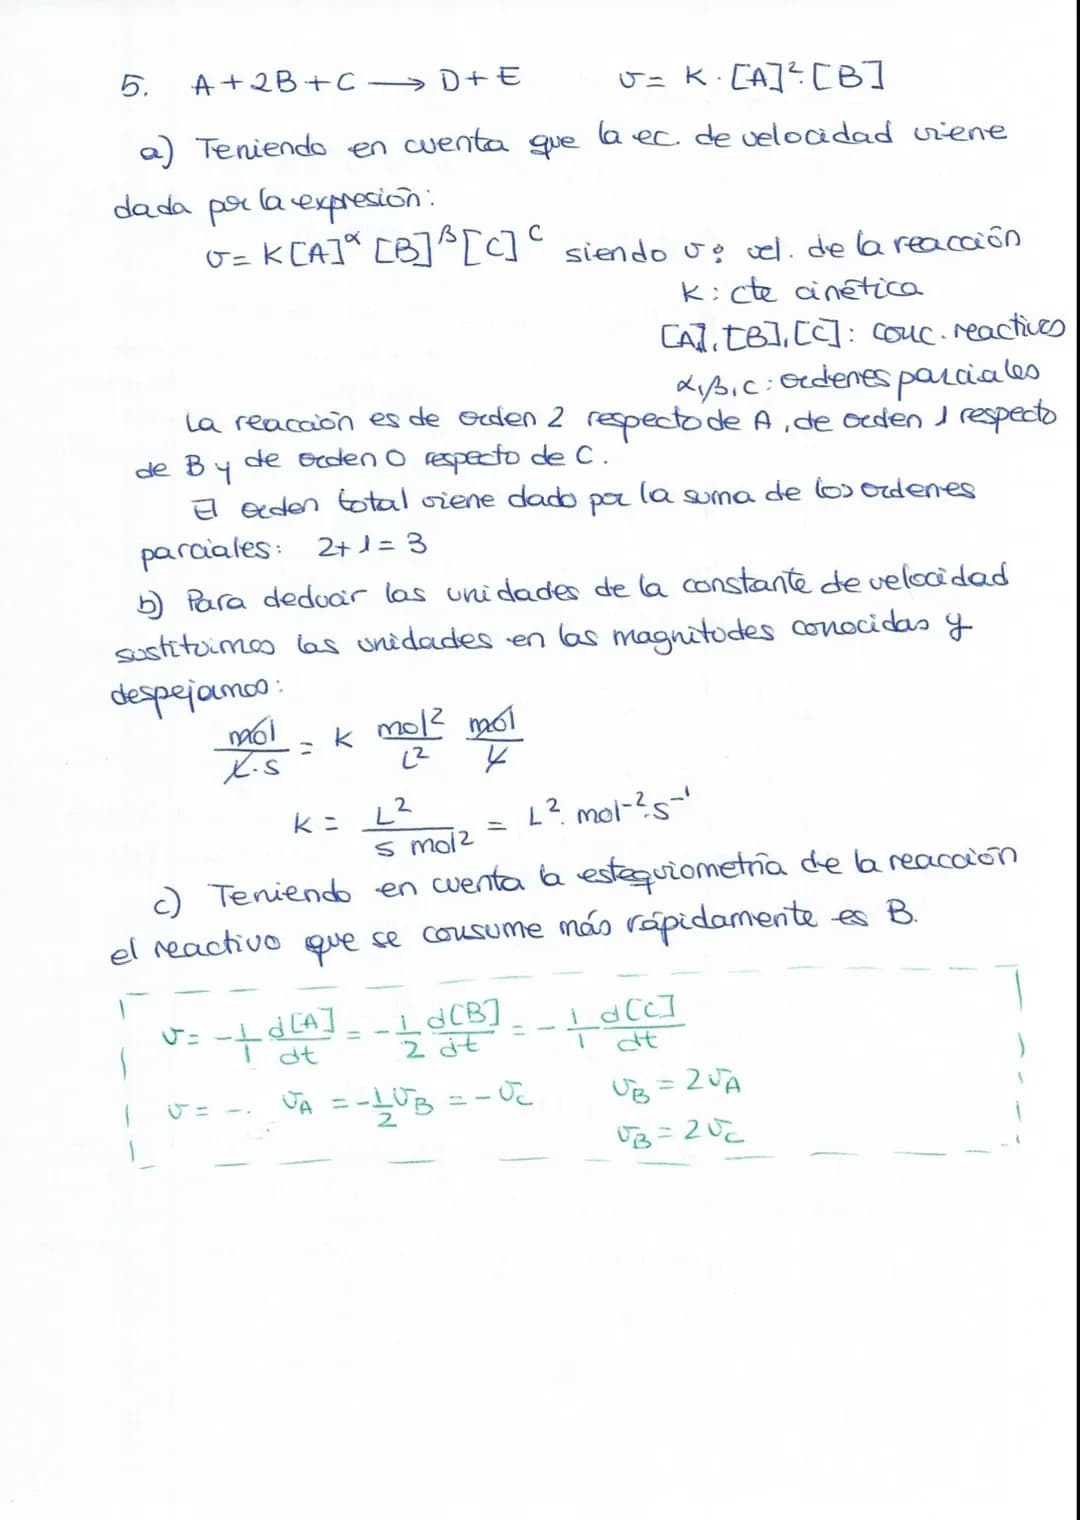 5. A + 2B + C ⟶ D + E   υ = K · [A]² · [B]
a) Teniendo en cuenta que la ec. de velocidad viene
dada por la expresión:
υ = K [A]^α [B]^β [C]^c siendo υ: vel. de la reacción
K: cte cinética
[A], [B], [C]: conc. reactivos
α, β, c: ordenes parciales
La reacción es de orden 2 respecto de A, de orden 1 respecto
de B y de orden 0 respecto de C.
El orden total viene dado por la suma de los ordenes
parciales: 2 + 1 = 3
b) Para deducir las unidades de la constante de velocidad
sustituimos las unidades en las magnitudes conocidas y
despejamos:
mol/(L·s) = k mol²/L² mol/L
k = L²/(s mol²) = L² · mol⁻² · s⁻¹
c) Teniendo en cuenta la estequiometría de la reacción
el reactivo que se consume más rápidamente es B.
υ = -1/1 d[A]/dt = -1/2 d[B]/dt = -1/1 d[C]/dt
υ = -. υ_A = -1/2 υ_B = -υ_C   υ_B = 2υ_A
υ_B = 2υ_C